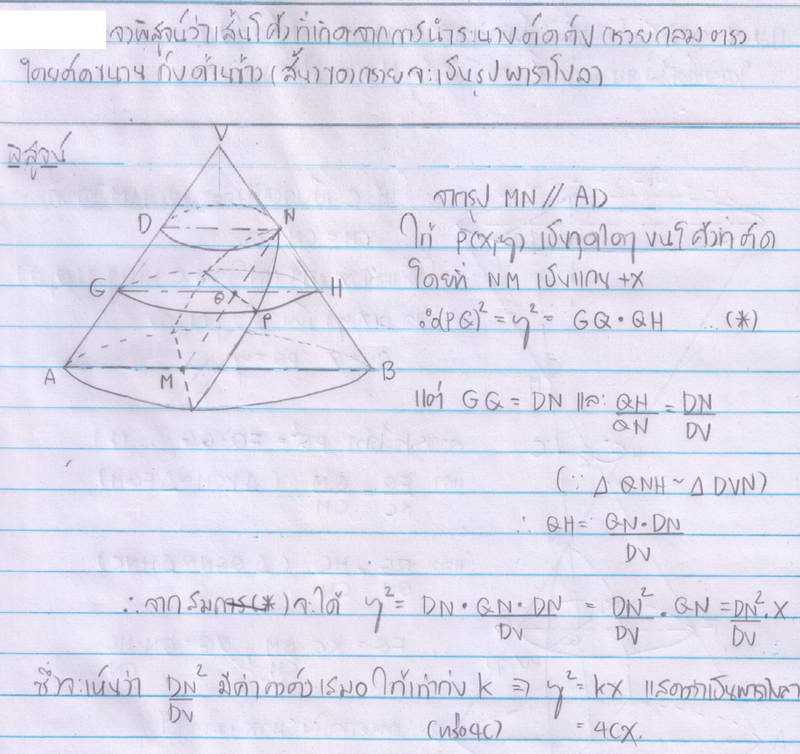 จงพิสูจน์ว่าเส้นโค้งที่เกิดจากการนำระนาบตัดกับ กรวยกลมตรง
โดยตัดขนานกับด้านข้าง (สั้น) ของกรวยจะเป็นรูปพาราโบลา
พิสูจน์
V
D
N
G
H
Q
P
A
M
B
จากรูป MN // AD
ให้ P(x,y) เป็นจุดใดๆ บนโค้งที่ตัด
โดยที่ NM เป็นแกน +X
∴ (PQ)² = y² = GQ · QH ... (*)
แต่ GQ = DN และ QH/QN = DN/DV
(∵ Δ QNH ~ Δ DVN)
∴ QH = QN · DN/DV
∴ จากสมการ(*) จะได้ y² = DN · QN · DN/DV = DN²/DV · QN = DN²/DV · x
ซึ่งจะเห็นว่า DN²/DV มีค่าคงตัวเสมอ ให้เท่ากับ k ⇒ y² = kx แสดงว่าเป็นพาราโบลา
(หรือ 4c) = 4cx.